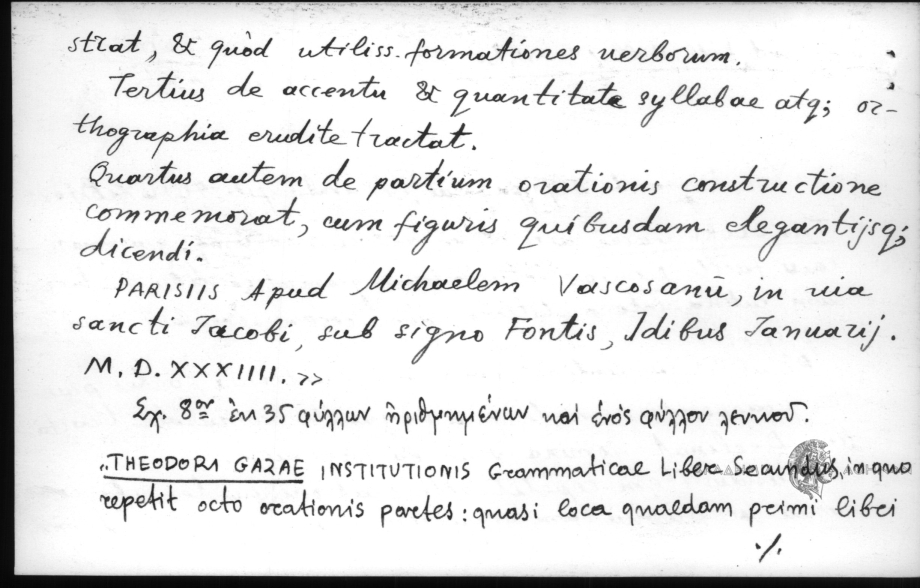 strat, & quòd utiliss. formationes verborum.
Tertius de accentu & quantitate syllabae atq; or-
thographia erudite tractat.
Quartus autem de partium orationis constructione
commemorat, cum figuris quibusdam elegantijsq;
dicendi.
PARISIIS Apud Michaelem Vascosanū, in uia
sancti Iacobi, sub signo Fontis, Idibus Ianuarij.
M. D. XXXIIII. >>
Σχ. 8ον ἐκ 35 φύλλων ἠριθμημένων καὶ ἑνὸς φύλλου λευκοῦ.
„THEODORI GAZAE INSTITUTIONIS Grammaticae Liber Secundus, in quo
repetit octo orationis partes: quasi loca quaedam primi libri
./.